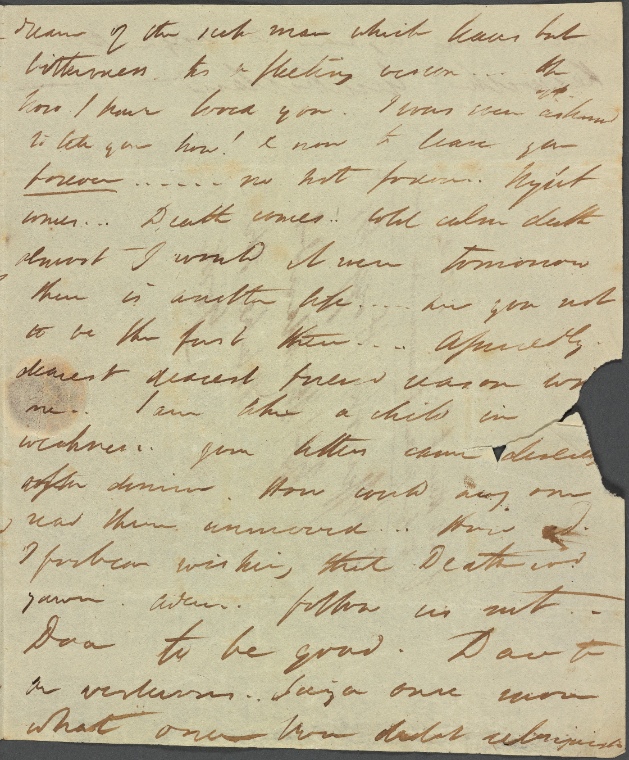 dream of the sick man which leaves but
bitterness its a fleeting vision ... Oh
how I have loved you. I was even ashamed
to tell you how! & now to leave you
forever ...... no not forever. Night
comes ... Death comes .. cold calm death
almost I would it were tomorrow
there is another life ... are you not
to be the first there .... Assuredly.
dearest dearest friend reason with
me .. I am like a child in
weakness .. your letters came directly
after dinner. How could any one
read them unmoved ... How
I forbear wishing that Death wd
yawn. adieu. follow us not ..
Dare to be good. Dare to
be virtuous .. Seize once more
what once thou didst relinquish